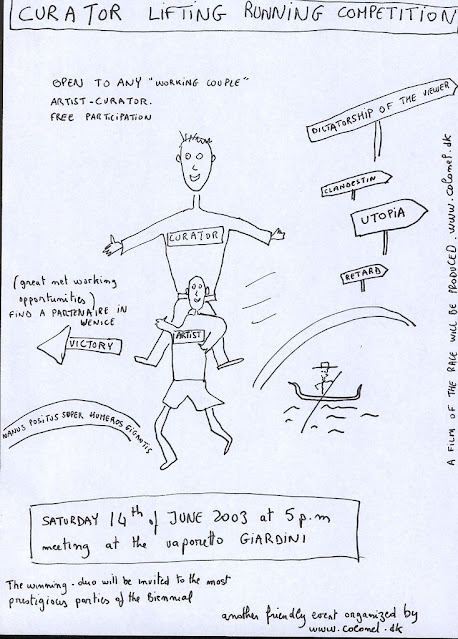 CURATOR LIFTING RUNNING COMPETITION
OPEN TO ANY "WORKING COUPLE"
ARTIST-CURATOR.
FREE PARTICIPATION
DICTATORSHIP OF THE VIEWER
CLANDESTIN
UTOPIA
RETARD
CURATOR
ARTIST
(great net working
opportunities)
FIND A PARTENAIRE IN
VENICE
VICTORY
NANUS POSITUS SUPER HUMEROS GIGANTIS
A FILM OF THE RACE WILL BE PRODUCED. www.colonel.dk
SATURDAY 14th of JUNE 2003 at 5 p.m
meeting at the vaporetto GIARDINI
The winning-duo will be invited to the most
prestigious parties of the Biennial
another friendly event organized by
www.colonel.dk